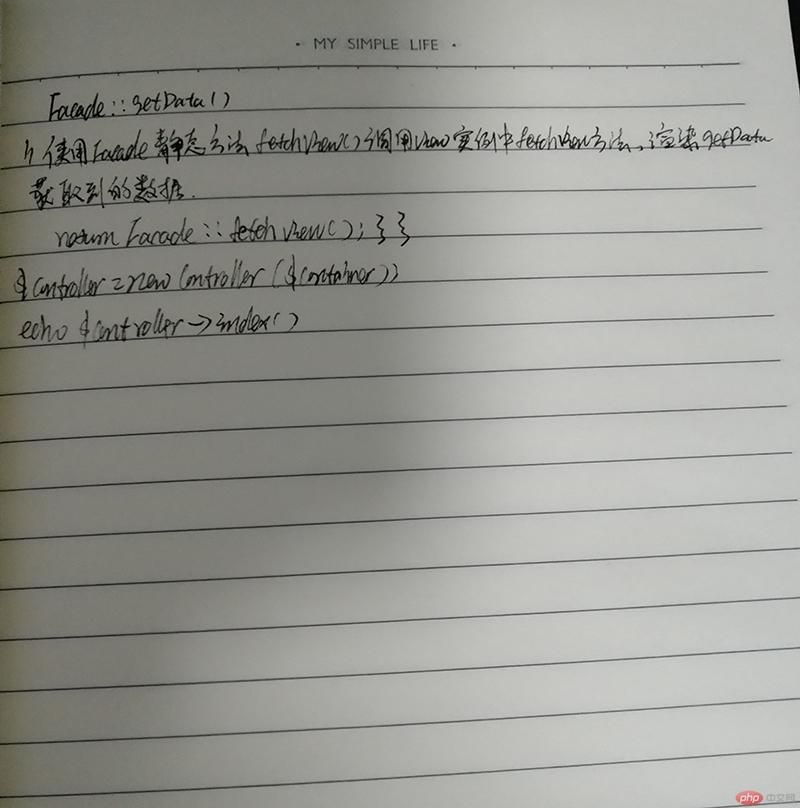 • MY SIMPLE LIFE •
Facade::getData()
// 使用Facade静态方法fetchView()调用View实例中fetchView方法,渲染getData
获取到的数据.
return Facade::fetchView();}}
$controller=new Controller($container))
echo $controller->index()
php 中文网